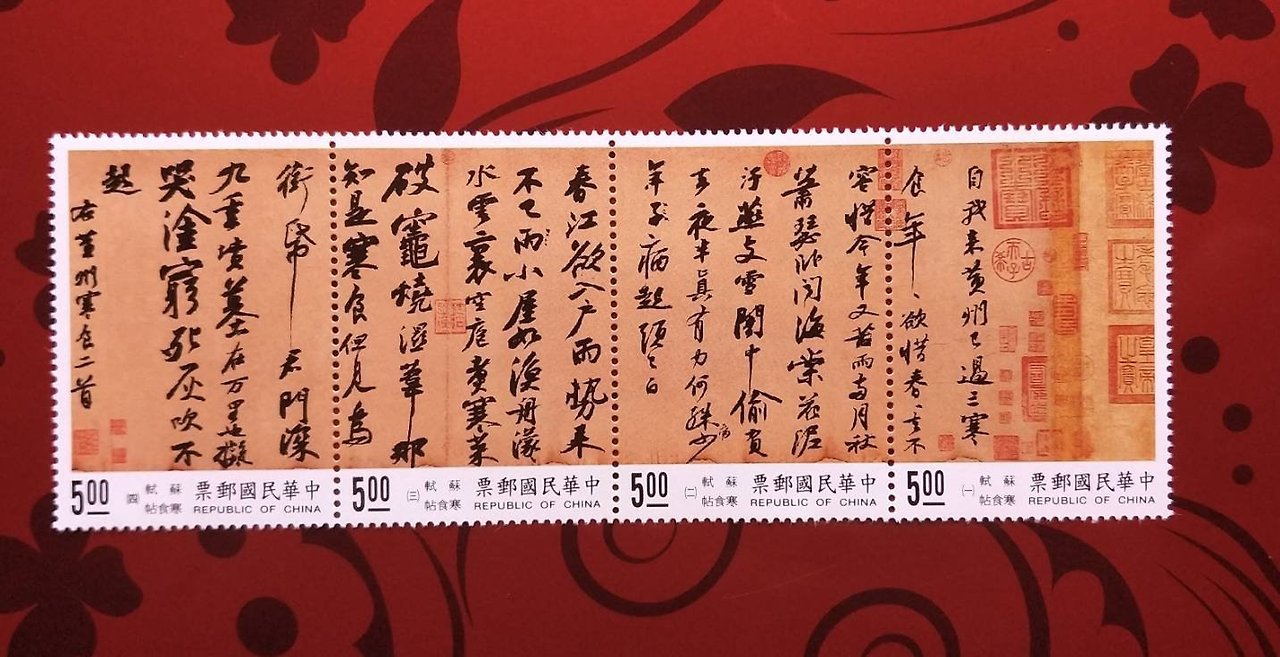 自我来黄州已過三寒
食年〻欲惜春〻去不
容惜今年又苦雨兩月秋
蕭瑟卧聞海棠花泥
汙燕支雪闇中偷負
去夜半真有力何殊少
病
年子病起頭已白
春江欲入户雨勢来
不已雨小屋如漁舟濛〻
水雲裏空庖煑寒菜
破竈燒濕葦那
知是寒食但見烏
銜帋君門深
九重墳墓在万里也擬
哭塗窮死灰吹不
起
右黄州寒食二首
古希天子
中華民國郵票
REPUBLIC OF CHINA
蘇軾
寒食帖
(一)
5.00
中華民國郵票
REPUBLIC OF CHINA
蘇軾
寒食帖
(二)
5.00
中華民國郵票
REPUBLIC OF CHINA
蘇軾
寒食帖
(三)
5.00
中華民國郵票
REPUBLIC OF CHINA
蘇軾
寒食帖
(四)
5.00